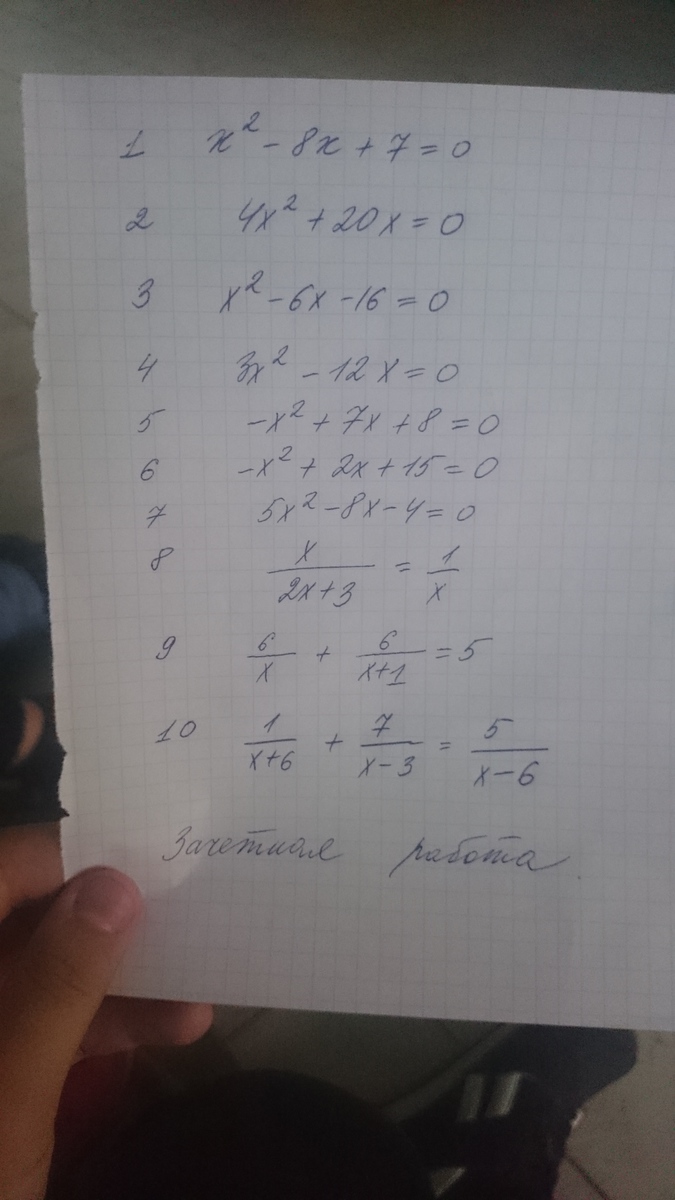 1 x² - 8x + 7 = 0
2 4x² + 20x = 0
3 x² - 6x - 16 = 0
4 3x² - 12x = 0
5 -x² + 7x + 8 = 0
6 -x² + 2x + 15 = 0
7 5x² - 8x - 4 = 0
8 x/(2x+3) = 1/x
9 6/x + 6/(x+1) = 5
10 1/(x+6) + 7/(x-3) = 5/(x-6)
Зачетная работа.